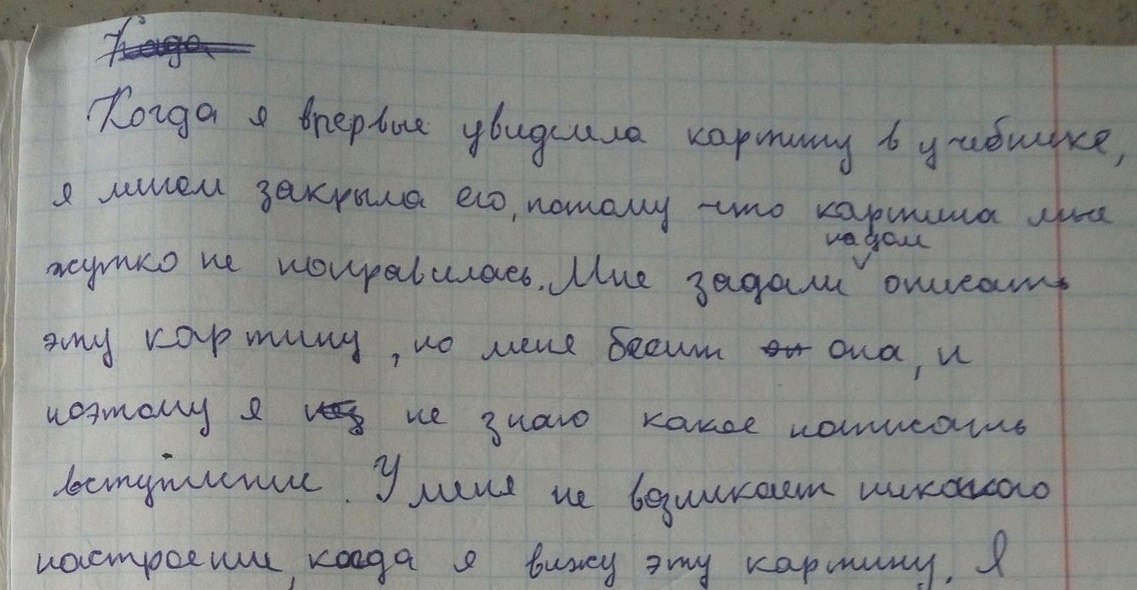 Када
Когда я впервые увидила картину в учебнике,
я мигом закрыла его, потому что картина мне
жутко не понравилась. Мне задали на дом описать
эту картину, но меня бесит он она, и
поэтому я не знаю какое написать
вступление. У меня не возникает никакого
настроение, когда я вижу эту картину. Я